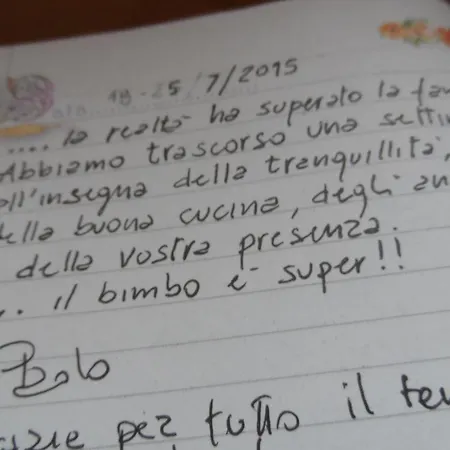 18-25/7/2015
.... la realtà ha superato la fan
Abbiamo trascorso una setti
all'insegna della tranquillità,
della buona cucina, degli an
della vostra presenza.
... il bimbo è super!!
Bolo
azie per tutto il te